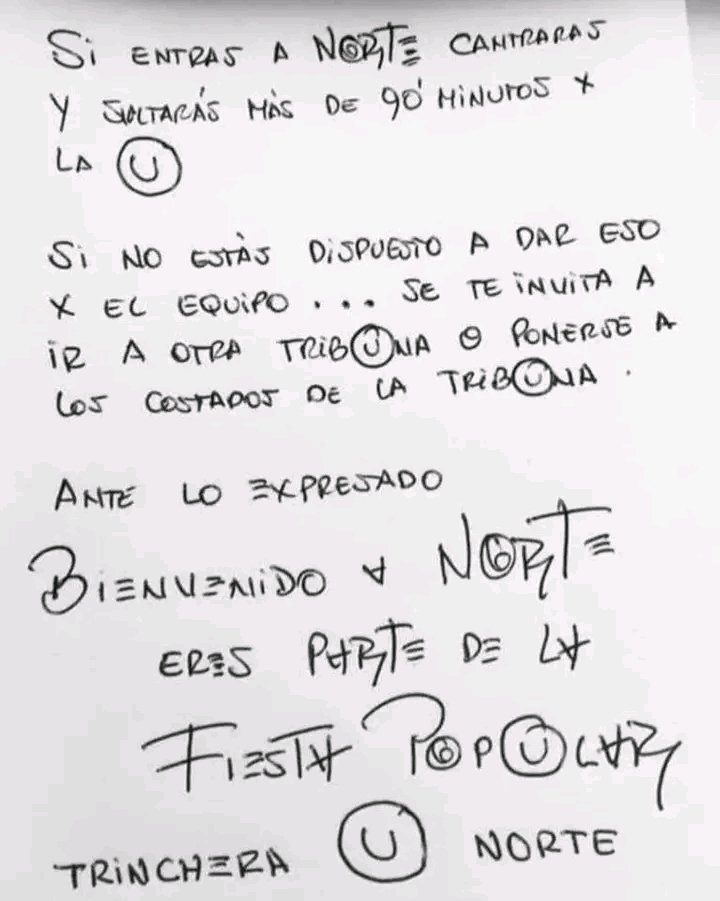 Si ENTRAS A NORTE CANTRARAS
Y SALTARÁS MÁS DE 90' MINUTOS X
LA U
Si NO ESTÁS DiSPUESTO A DAR ESO
X EL EQUiPO . . . SE TE iNViTA A
iR A OTRA TRiBUNA O PONERSE A
LOS COSTADOS DE LA TRiBUNA .
ANTE LO EXPRESADO
BiENVENiDO A NORTE
ERES PARTE DE LA
FiESTA POPULAR
TRiNCHERA U NORTE